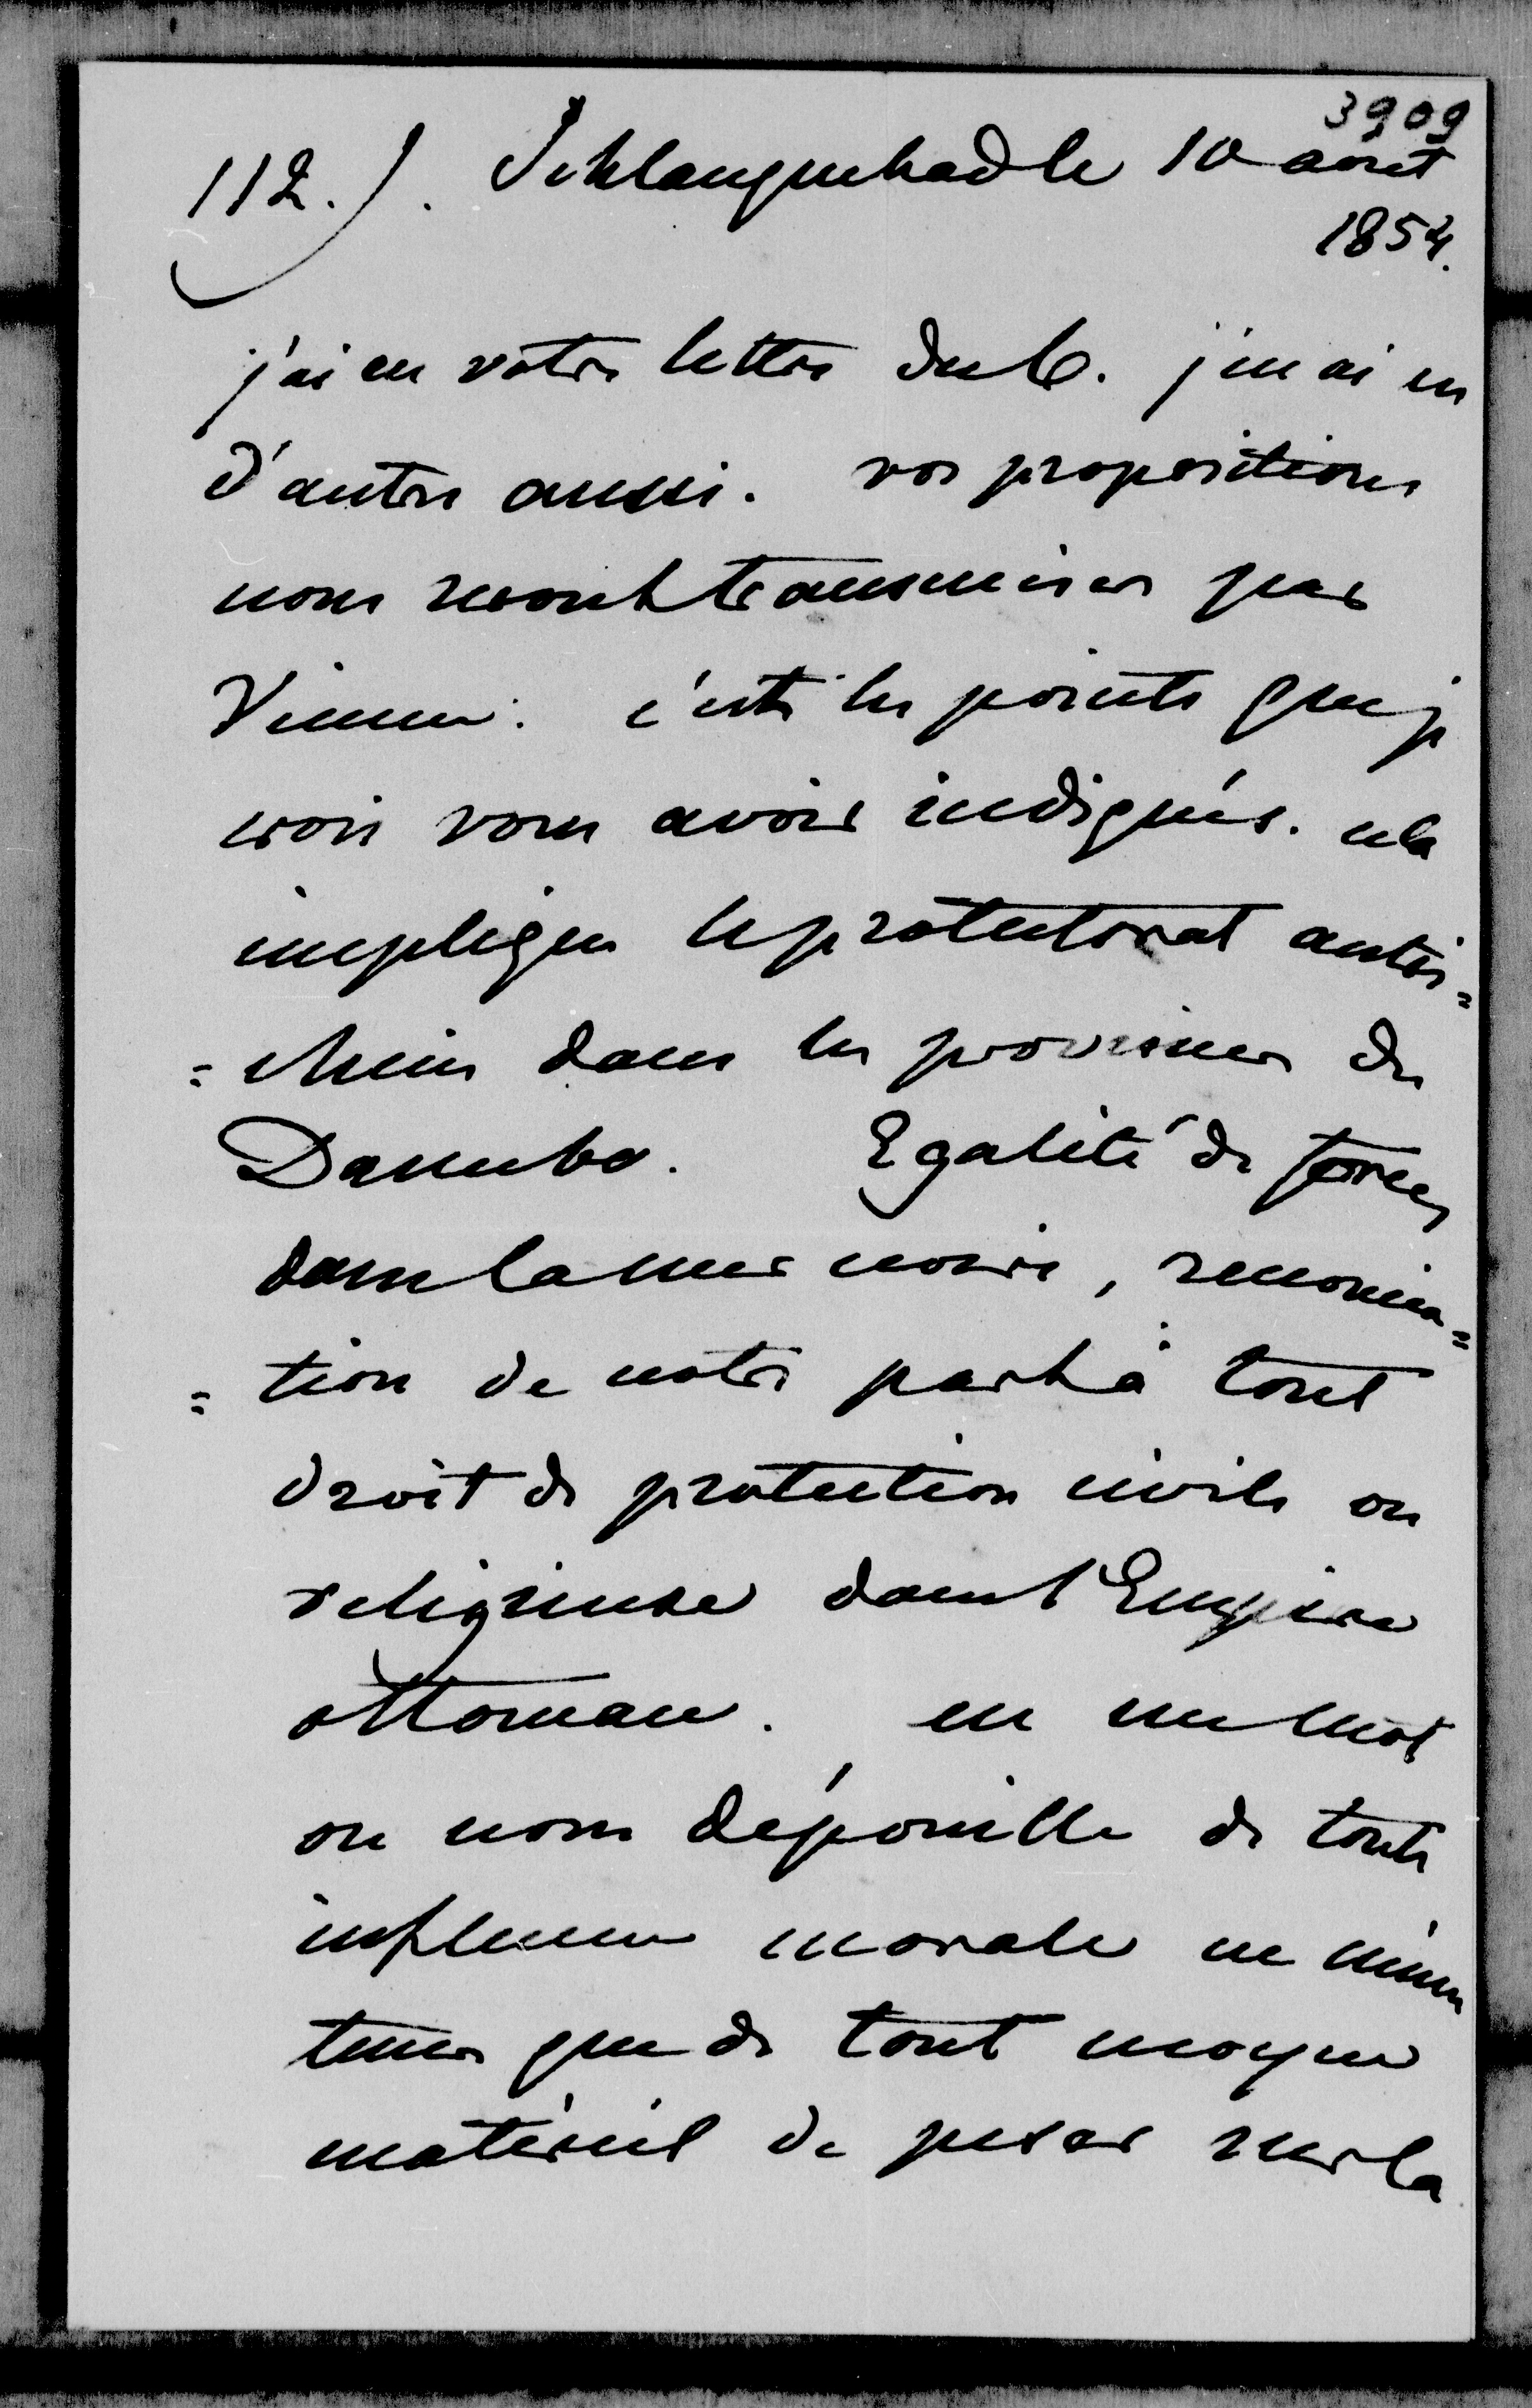 3909
112.). Schlangenbad le 10 aout
1854.
j'ai eu votre lettre du 6. j'en ai eu
d'autres aussi. vos propositions
nous seront transmises par
Vienne. c'est les points que je
crois vous avoir indiqués. cela
implique le protectorat autri=
=chien dans les provinces du
Danube. Egalité de forces
dans la mer noire, renoncia=
=tion de notre part à tout
droit de protection civile ou
religieuse dans l'Empire
ottoman. en un mot
on nous dépouille de toute
influence morale en même
tems que de tout moyen
matériel de peser sur la